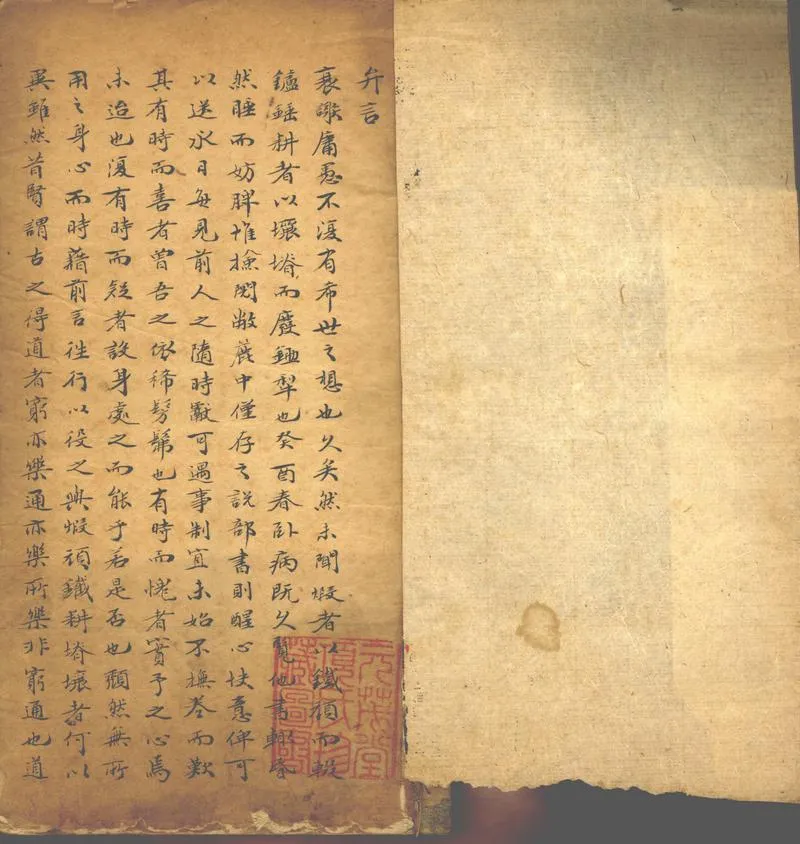 弁言
衰謝庸愚不復有希世之想也久矣然未聞煅者以鐵頑而輟
鑪錘耕者以壤塉而廢鋤犂也癸酉春卧病既久覽他書輒昏
然睡而妨脾惟撿閱敝簏中僅存之說部書則醒心快意俾可
以送永日每見前人之隨時獻可遇事制宜未始不撫卷而歎
其有時而喜者曾吾之依稀髣髴也有時而愧者實予之心焉
未迨也復有時而疑者設身處之而能乎若是否也頹然無所
用之身心而時藉前言往行以役之與煅頑鐵耕塉壤者何以
異雖然昔賢謂古之得道者窮亦樂通亦樂所樂非窮通也道
元茂堂